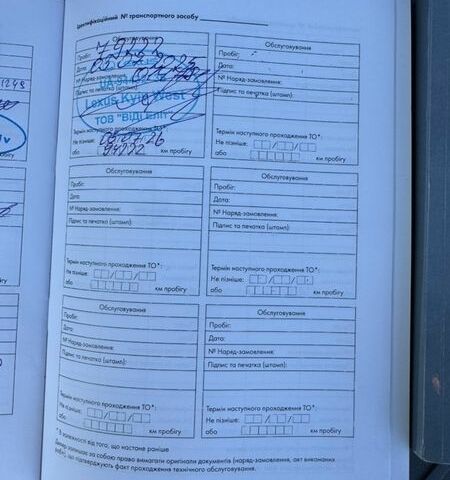 Ідентифікаційний № транспортного засобу
Обслуговування
Пробіг: 79222
Дата:
№ Наряд-замовлення:
Підпис та печатка (штамп):
Lexus Kyiv West
ТОВ "ВІДІ ЕЛІТ"
Термін наступного проходження ТО*:
Не пізніше:
або 94222 км пробігу
Обслуговування
Пробіг:
Дата:
№ Наряд-замовлення:
Підпис та печатка (штамп):
Термін наступного проходження ТО*:
Не пізніше: / /
або км пробігу
Обслуговування
Пробіг:
Дата:
№ Наряд-замовлення:
Підпис та печатка (штамп):
Термін наступного проходження ТО*:
Не пізніше: / /
або км пробігу
Обслуговування
Пробіг:
Дата:
№ Наряд-замовлення:
Підпис та печатка (штамп):
Термін наступного проходження ТО*:
Не пізніше: / /
або км пробігу
Обслуговування
Пробіг:
Дата:
№ Наряд-замовлення:
Підпис та печатка (штамп):
Термін наступного проходження ТО*:
Не пізніше: / /
або км пробігу
Обслуговування
Пробіг:
Дата:
№ Наряд-замовлення:
Підпис та печатка (штамп):
Термін наступного проходження ТО*:
Не пізніше: / /
або км пробігу
* В залежності від того, що настане раніше
Дилер залишає за собою право вимагати оригінали документів (наряд-замовлення, акт виконаних
робіт), що підтверджують факт проходження технічного обслуговування.